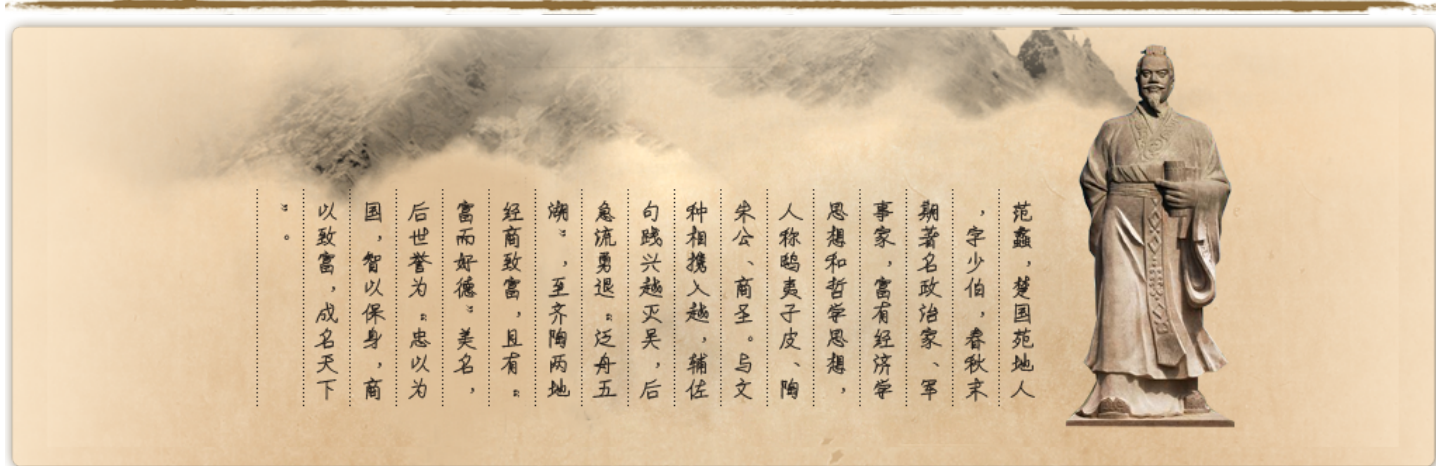 范蠡，楚国苑地人
，字少伯，春秋末
期著名政治家、军
事家，富有经济学
思想和哲学思想，
人称鸱夷子皮、陶
朱公、商圣。与文
种相携入越，辅佐
勾践兴越灭吴，后
急流勇退“泛舟五
湖”，至齐陶两地
经商致富，且有“
富而好德”美名，
后世誉为“忠以为
国，智以保身，商
以致富，成名天下
”。